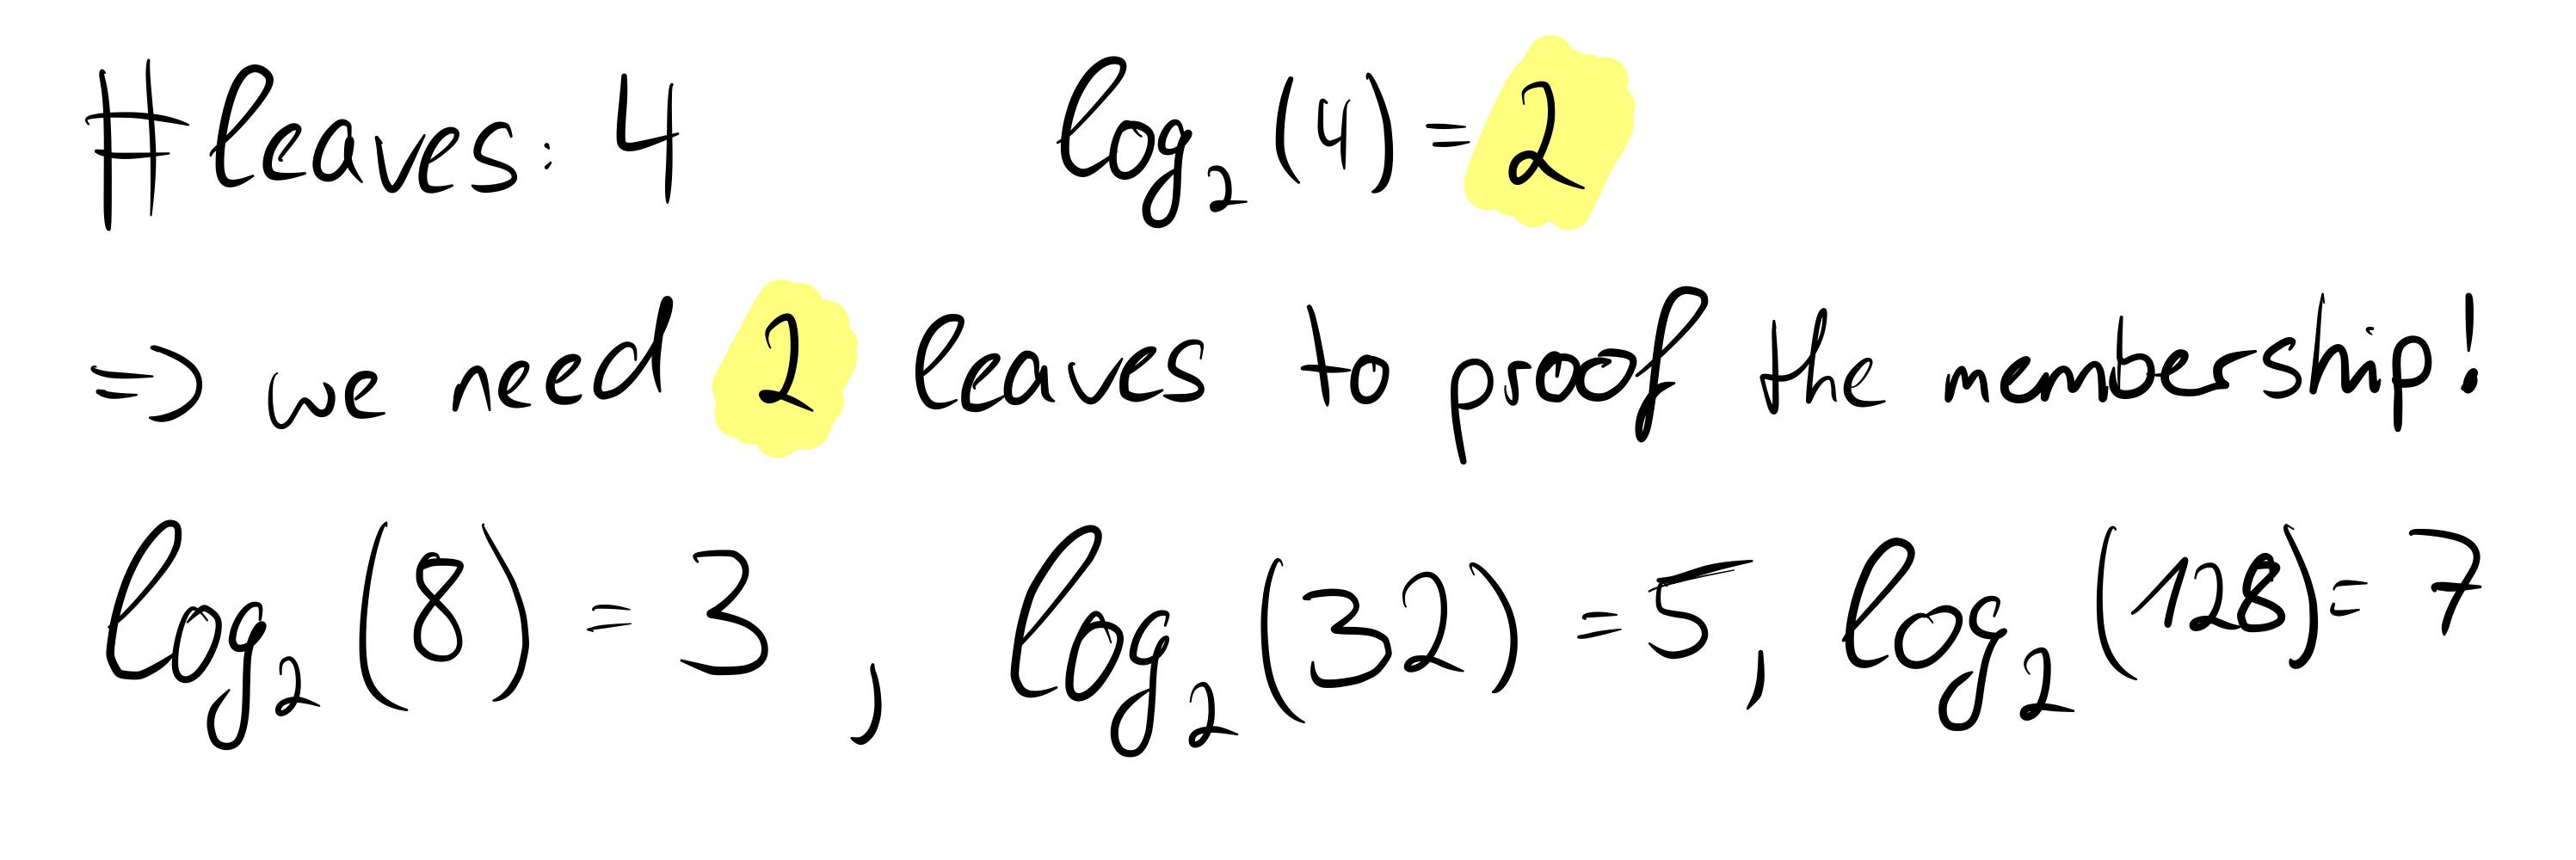 #leaves: 4 log₂(4) = 2
⇒ we need 2 leaves to proof the membership!
log₂(8) = 3 , log₂(32) = 5, log₂(128) = 7